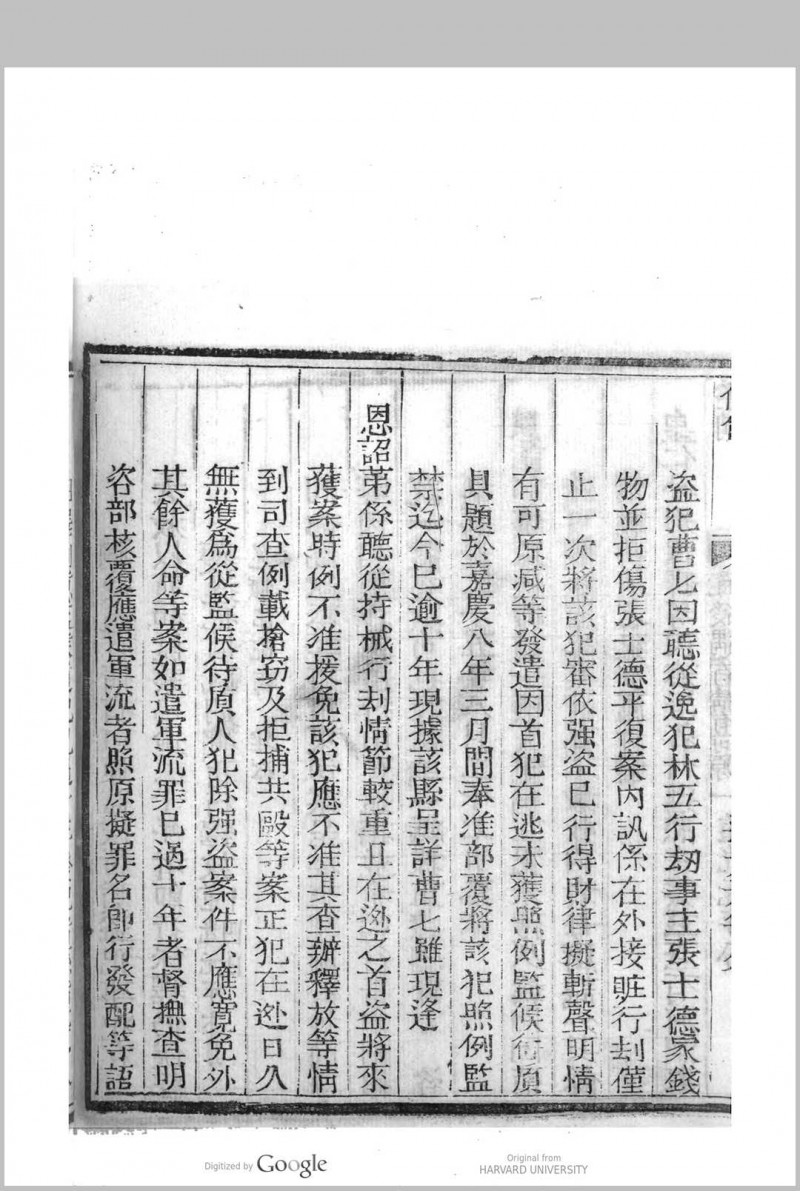 盜犯曹七因聽從逸犯林五行刼事主張士德家錢
物並拒傷張士德平復案內訊係在外接賍行刦僅
止一次將該犯審依强盜已行得財律擬斬聲明情
有可原减等發遣因首犯在逃未獲照例監候待質
具題於嘉慶八年三月間奉准部覆將該犯照例監
禁迄今已逾十年現據該縣呈詳曹七雖現逢
恩詔第係聽從持械行刦情節較重且在逃之首盜將來
獲案時例不准援免該犯應不准其查辦釋放等情
到司查例載搶竊及拒捕共毆等案正犯在逃日久
無獲爲從監候待質人犯除强盜案件不應寬免外
其餘人命等案如遣軍流罪已過十年者督撫查明
咨部核覆應遣軍流者照原擬罪名卽行發配等語
Digitized by Google
Original from
HARVARD UNIVERSITY